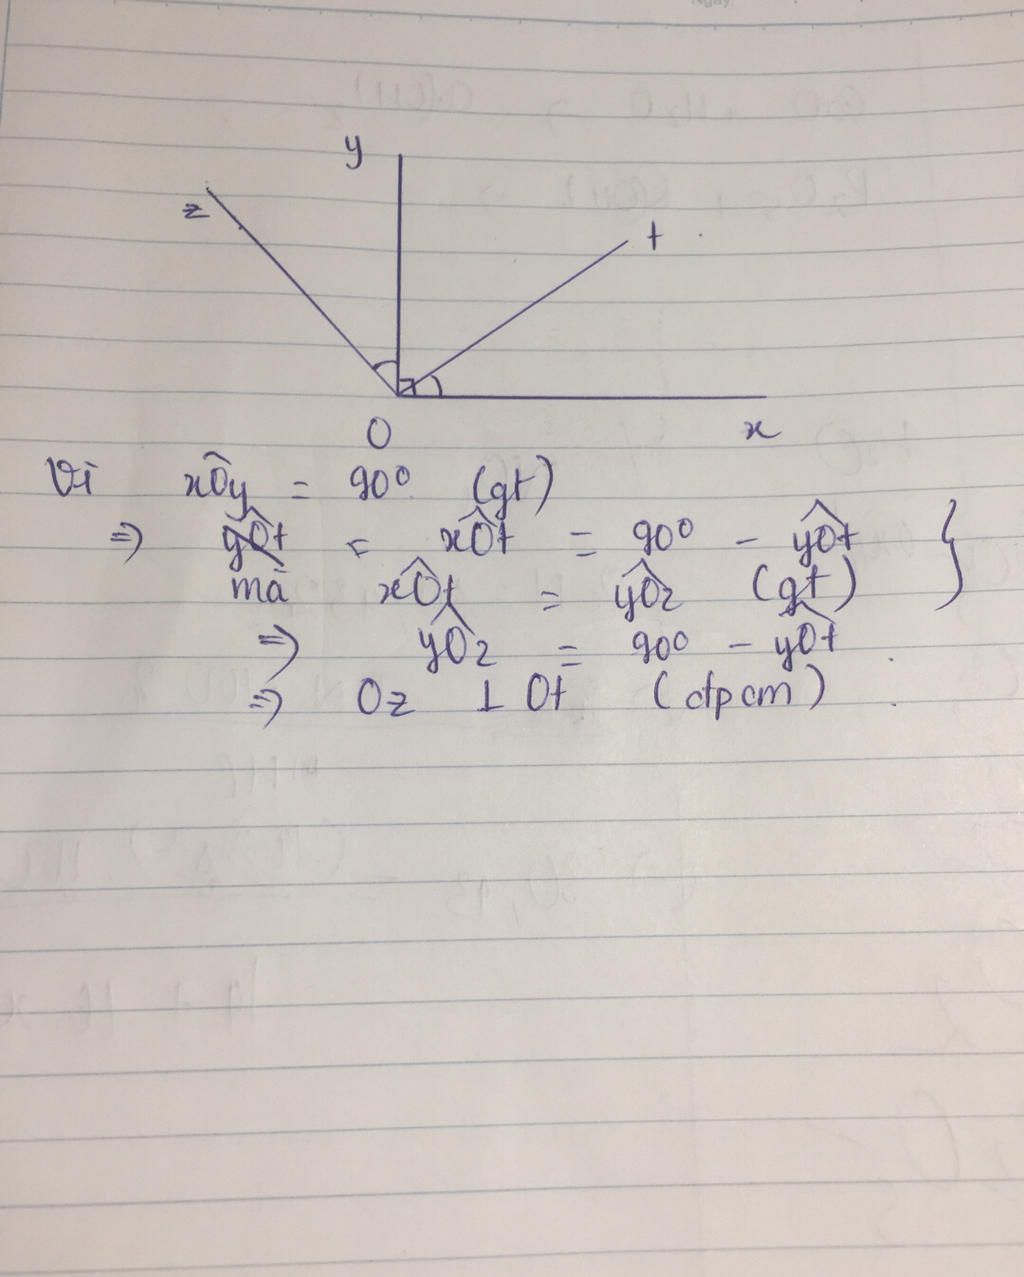 y
z
t
O
x
Vì xÔy = 90° (gt)
=> yÔt = xÔt = 90° - yÔt
mà xÔt = yÔz (gt)
=> yÔz = 90° - yÔt
=> Oz ⊥ Ot (đpcm)